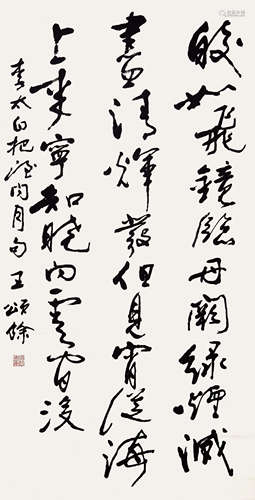 皎如飛鏡臨丹闕綠煙滅
盡清輝發但見宵從海
上來寧知曉向雲間沒
李太白把酒问月句 王頌餘